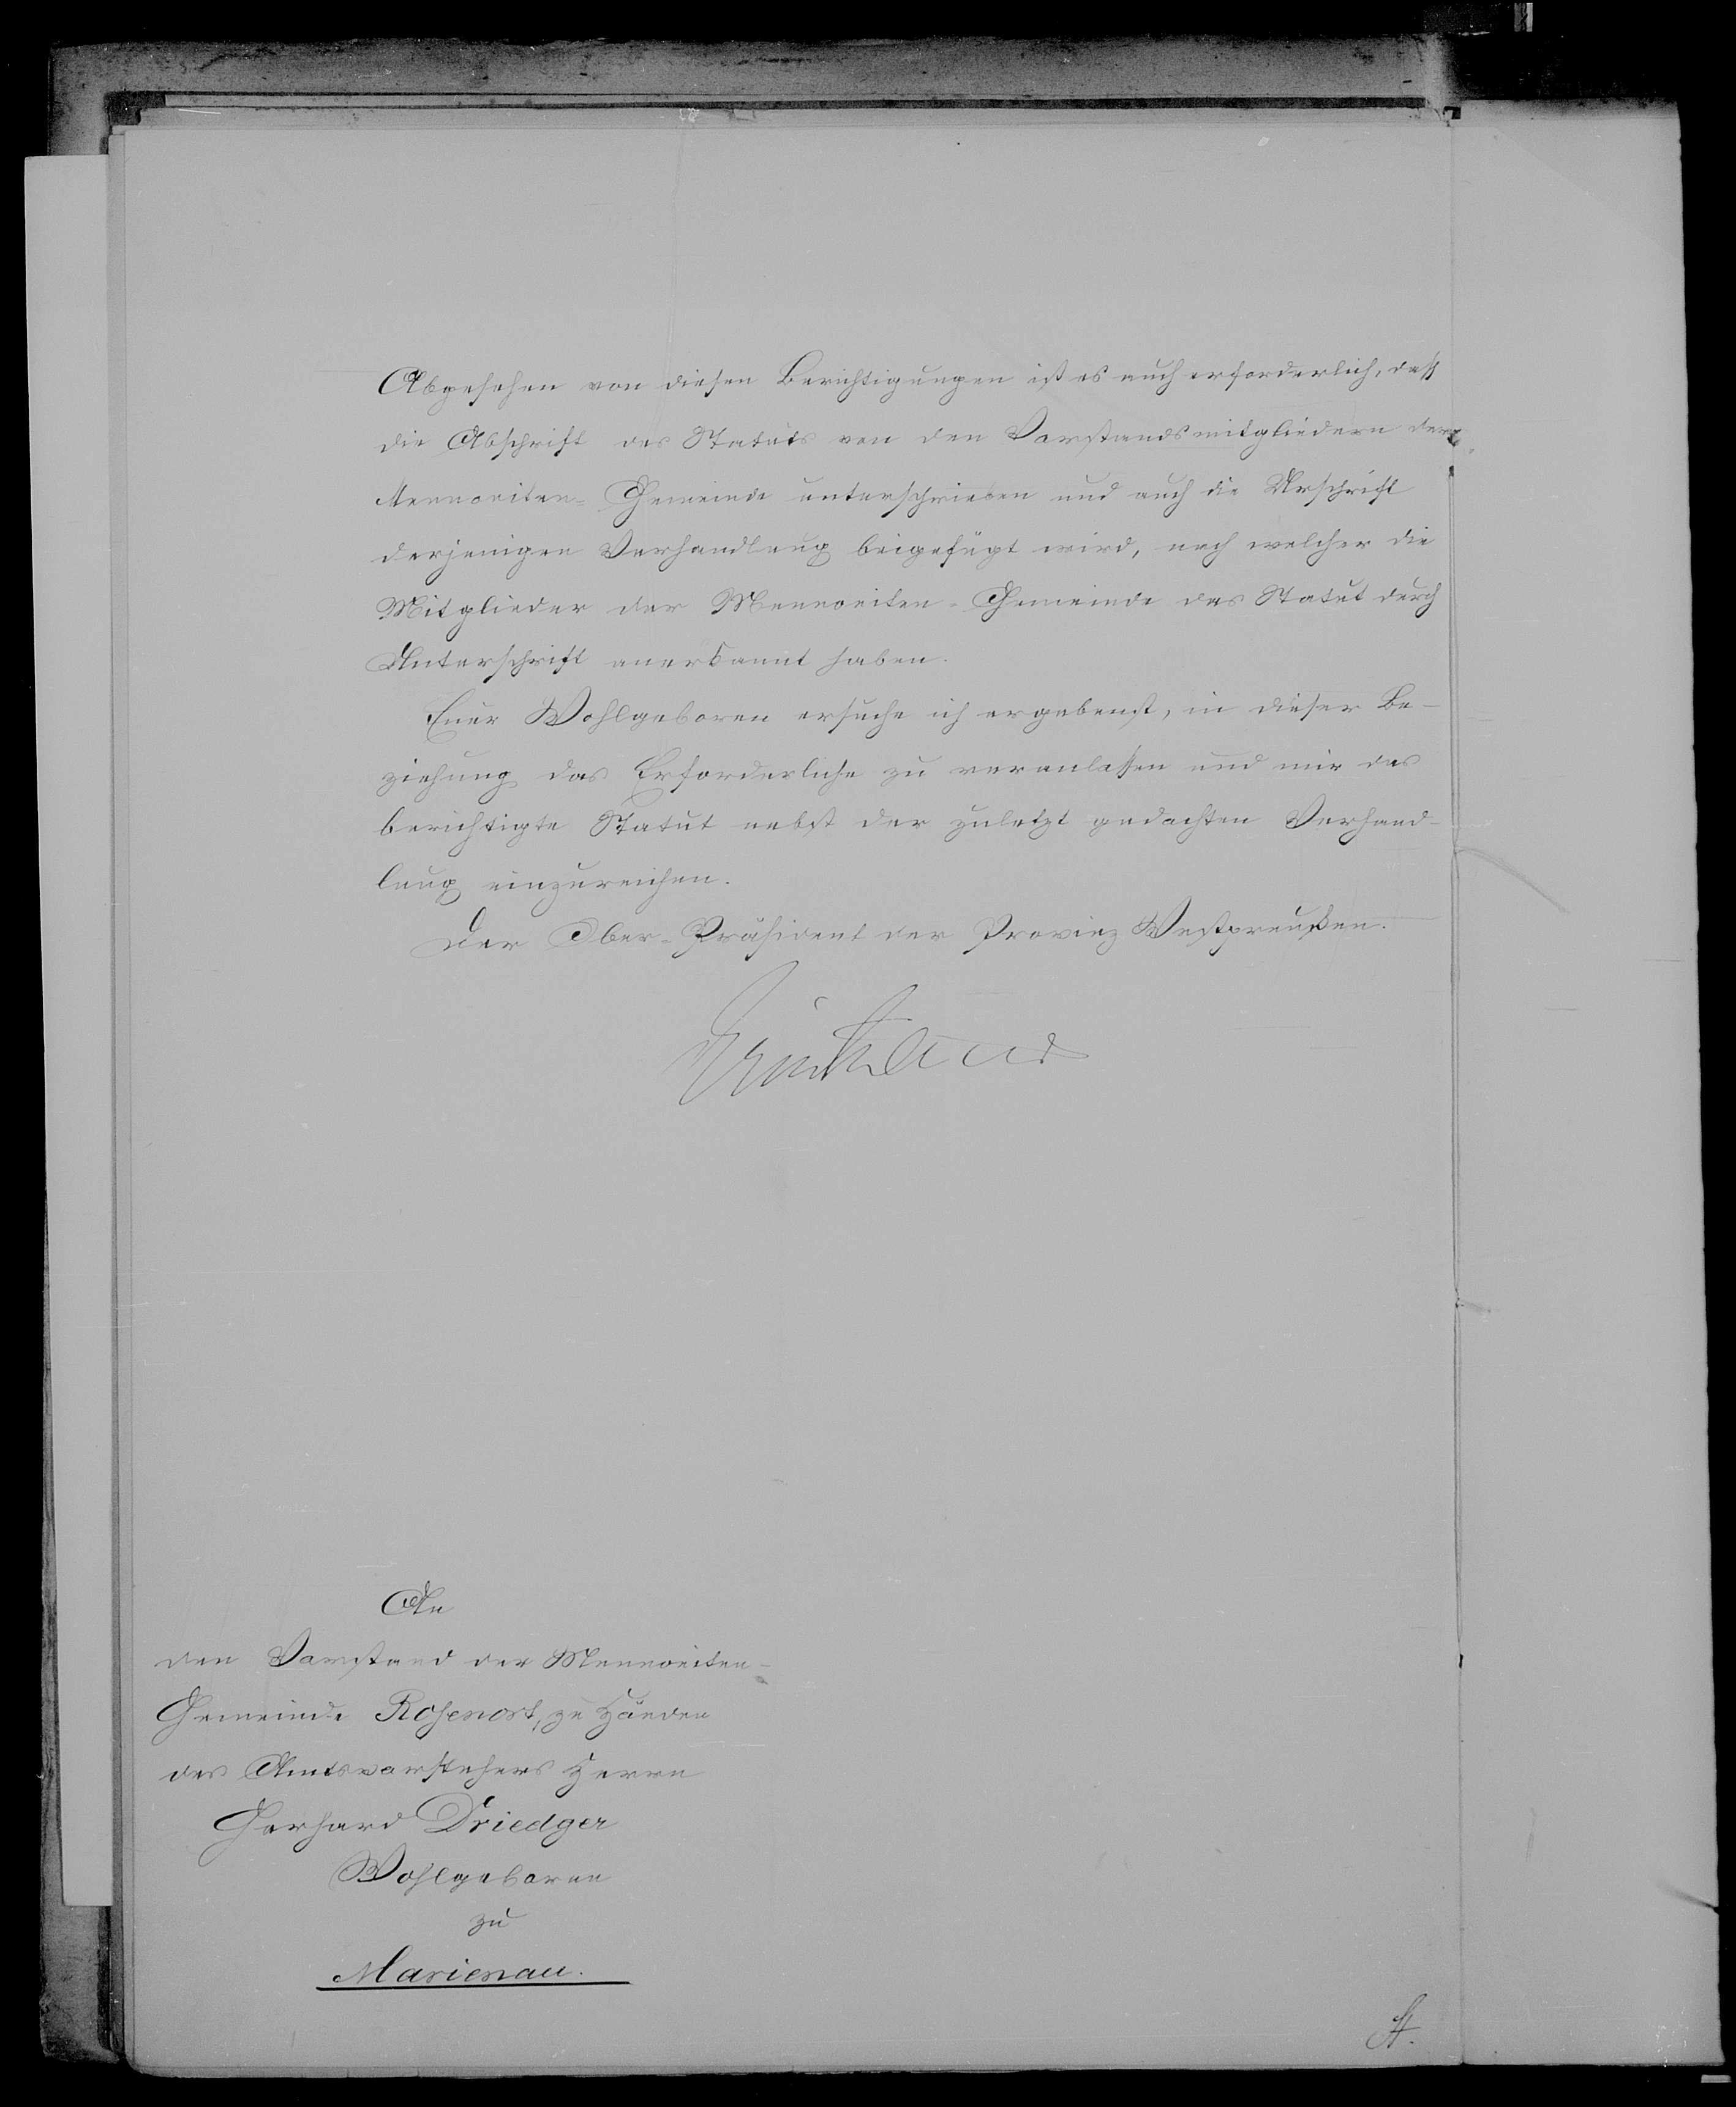 Abgesehen von diesen Berichtigungen ist es auch erforderlich, daß
die Abschrift des Statuts von den Vorstandsmitgliedern der
Mennoniten-Gemeinde unterschrieben und auch die Urschrift
derjenigen Verhandlung beigefügt wird, nach welcher die
Mitglieder der Mennoniten-Gemeinde das Statut durch
Unterschrift anerkannt haben.
Euer Wohlgeboren ersuche ich ergebenst, in dieser Be-
ziehung das Erforderliche zu veranlassen und mir das
berichtigte Statut nebst der zuletzt gedachten Verhand-
lung einzureichen.
Der Ober-Präsident der Provinz Westpreußen.
An
den Vorstand der Mennoniten-
Gemeinde Rosenort, zu Händen
des Amtsvorstehers Herrn
Gerhard Driedger
Wohlgeboren
zu
Marienau.